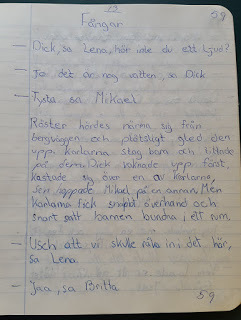 59
Fångar
— Dick, sa Lena, hör inte du ett ljud?
— Jo det är nog vatten, sa Dick
— Tysta sa Mikael
Röster hördes närma sig från
bergväggen och plötsligt gled den
upp. Karlarna stog bara och tittade
på dem. Dick vaknade upp först,
kastade sig över en av karlarna,
sen hoppade Mikael på en annan. Men
karlarna fick snabbt överhand och
snart satt barnen bundna i ett rum.
— Usch att vi skulle råka in i det här,
sa Lena.
— Jaa, sa Britta
59